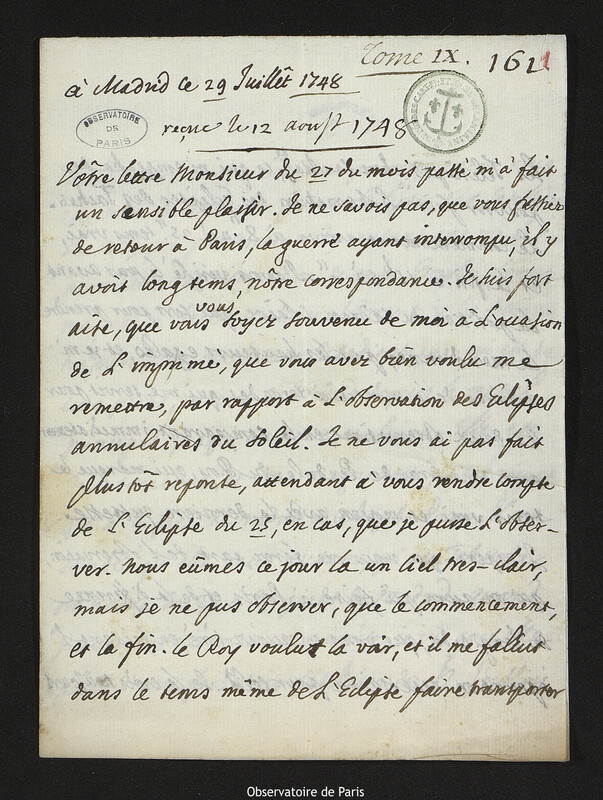 Tome IX. 161 1
à Madrid ce 29 Juillêt 1748
OBSERVATOIRE DE PARIS
reçue le 12 aoust 1748
Vôtre lettre Monsieur du 27 du mois passé m'a fait
un sensible plaisir. Je ne savois pas, que vous fussiez
de retour à Paris, la guerre ayant interrompu, il y
avoit long tems, nôtre correspondance. Je suis fort
aise, que vous vous soyez souvenu de moi à l'ocasion
de l'imprimé, que vous avez bien voulu me
remettre, par rapport à l'observation des Eclipses
annulaires du soleil. Je ne vous ai pas fait
plustôt reponse, attendant à vous rendre compte
de l'Eclipse du 25, en cas, que je pusse l'obser-
ver. nous eûmes ce jour la un ciel tres-clair,
mais je ne pus observer, que le commencement,
et la fin. le Roy voulut la voir, et il me fallut
dans le tems même de l'Eclipse faire transporter
Observatoire de Paris